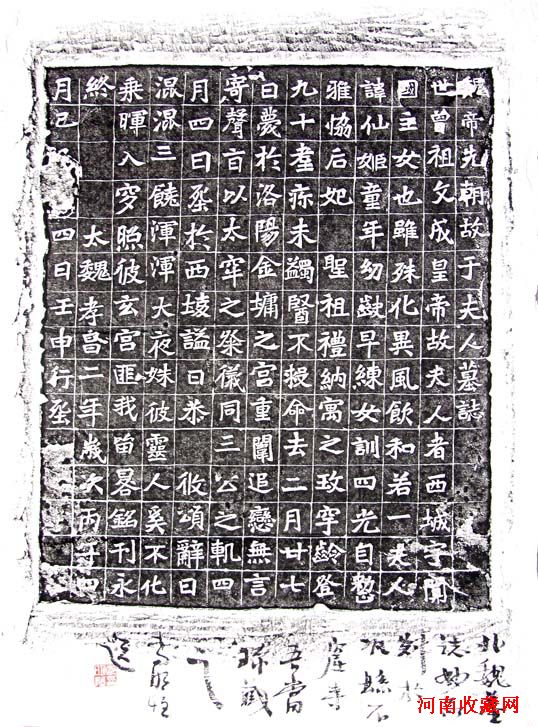 魏帝先朝故于夫人墓誌
世曾祖文成皇帝故夫人者西城宇闐
國主女也雖殊化異風飲和若一夫人
諱仙姬童年幼齔早練女訓四光自整
雅協后妃 聖祖禮納寓之玫宇齡登
九十耋疹未蠲醫不授命去二月廿七
日薨於洛陽金墉之宮重闈追戀無言
寄聲旨以太牢之祭儀同三公之軌四
月四日葬於西陵諡曰恭 攸頌辭曰
混混三饒渾渾大夜姝彼靈人奚不化
乘暉入穸照彼玄宮匪我留晷銘刊永
終 太魏孝昌二年歲次丙午四
月己 四日壬申行葬
北魏墓
誌
刻於
縣石
窟寺
吾當
珍藏
之
河南收藏网